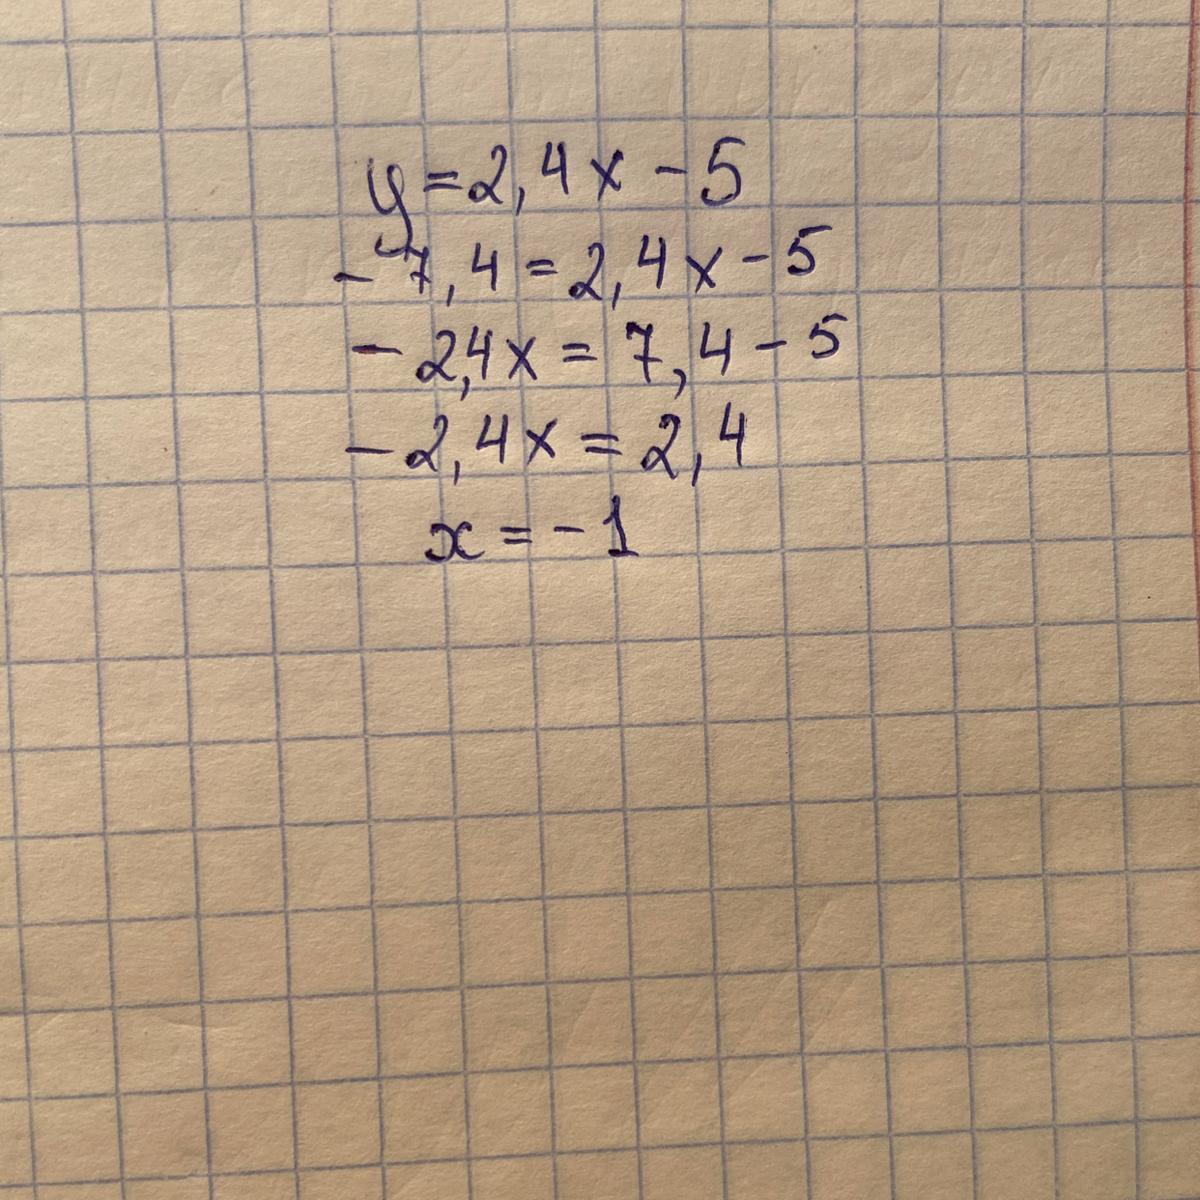 y=2,4x-5
-7,4=2,4x-5
-2,4x=7,4-5
-2,4x=2,4
x=-1